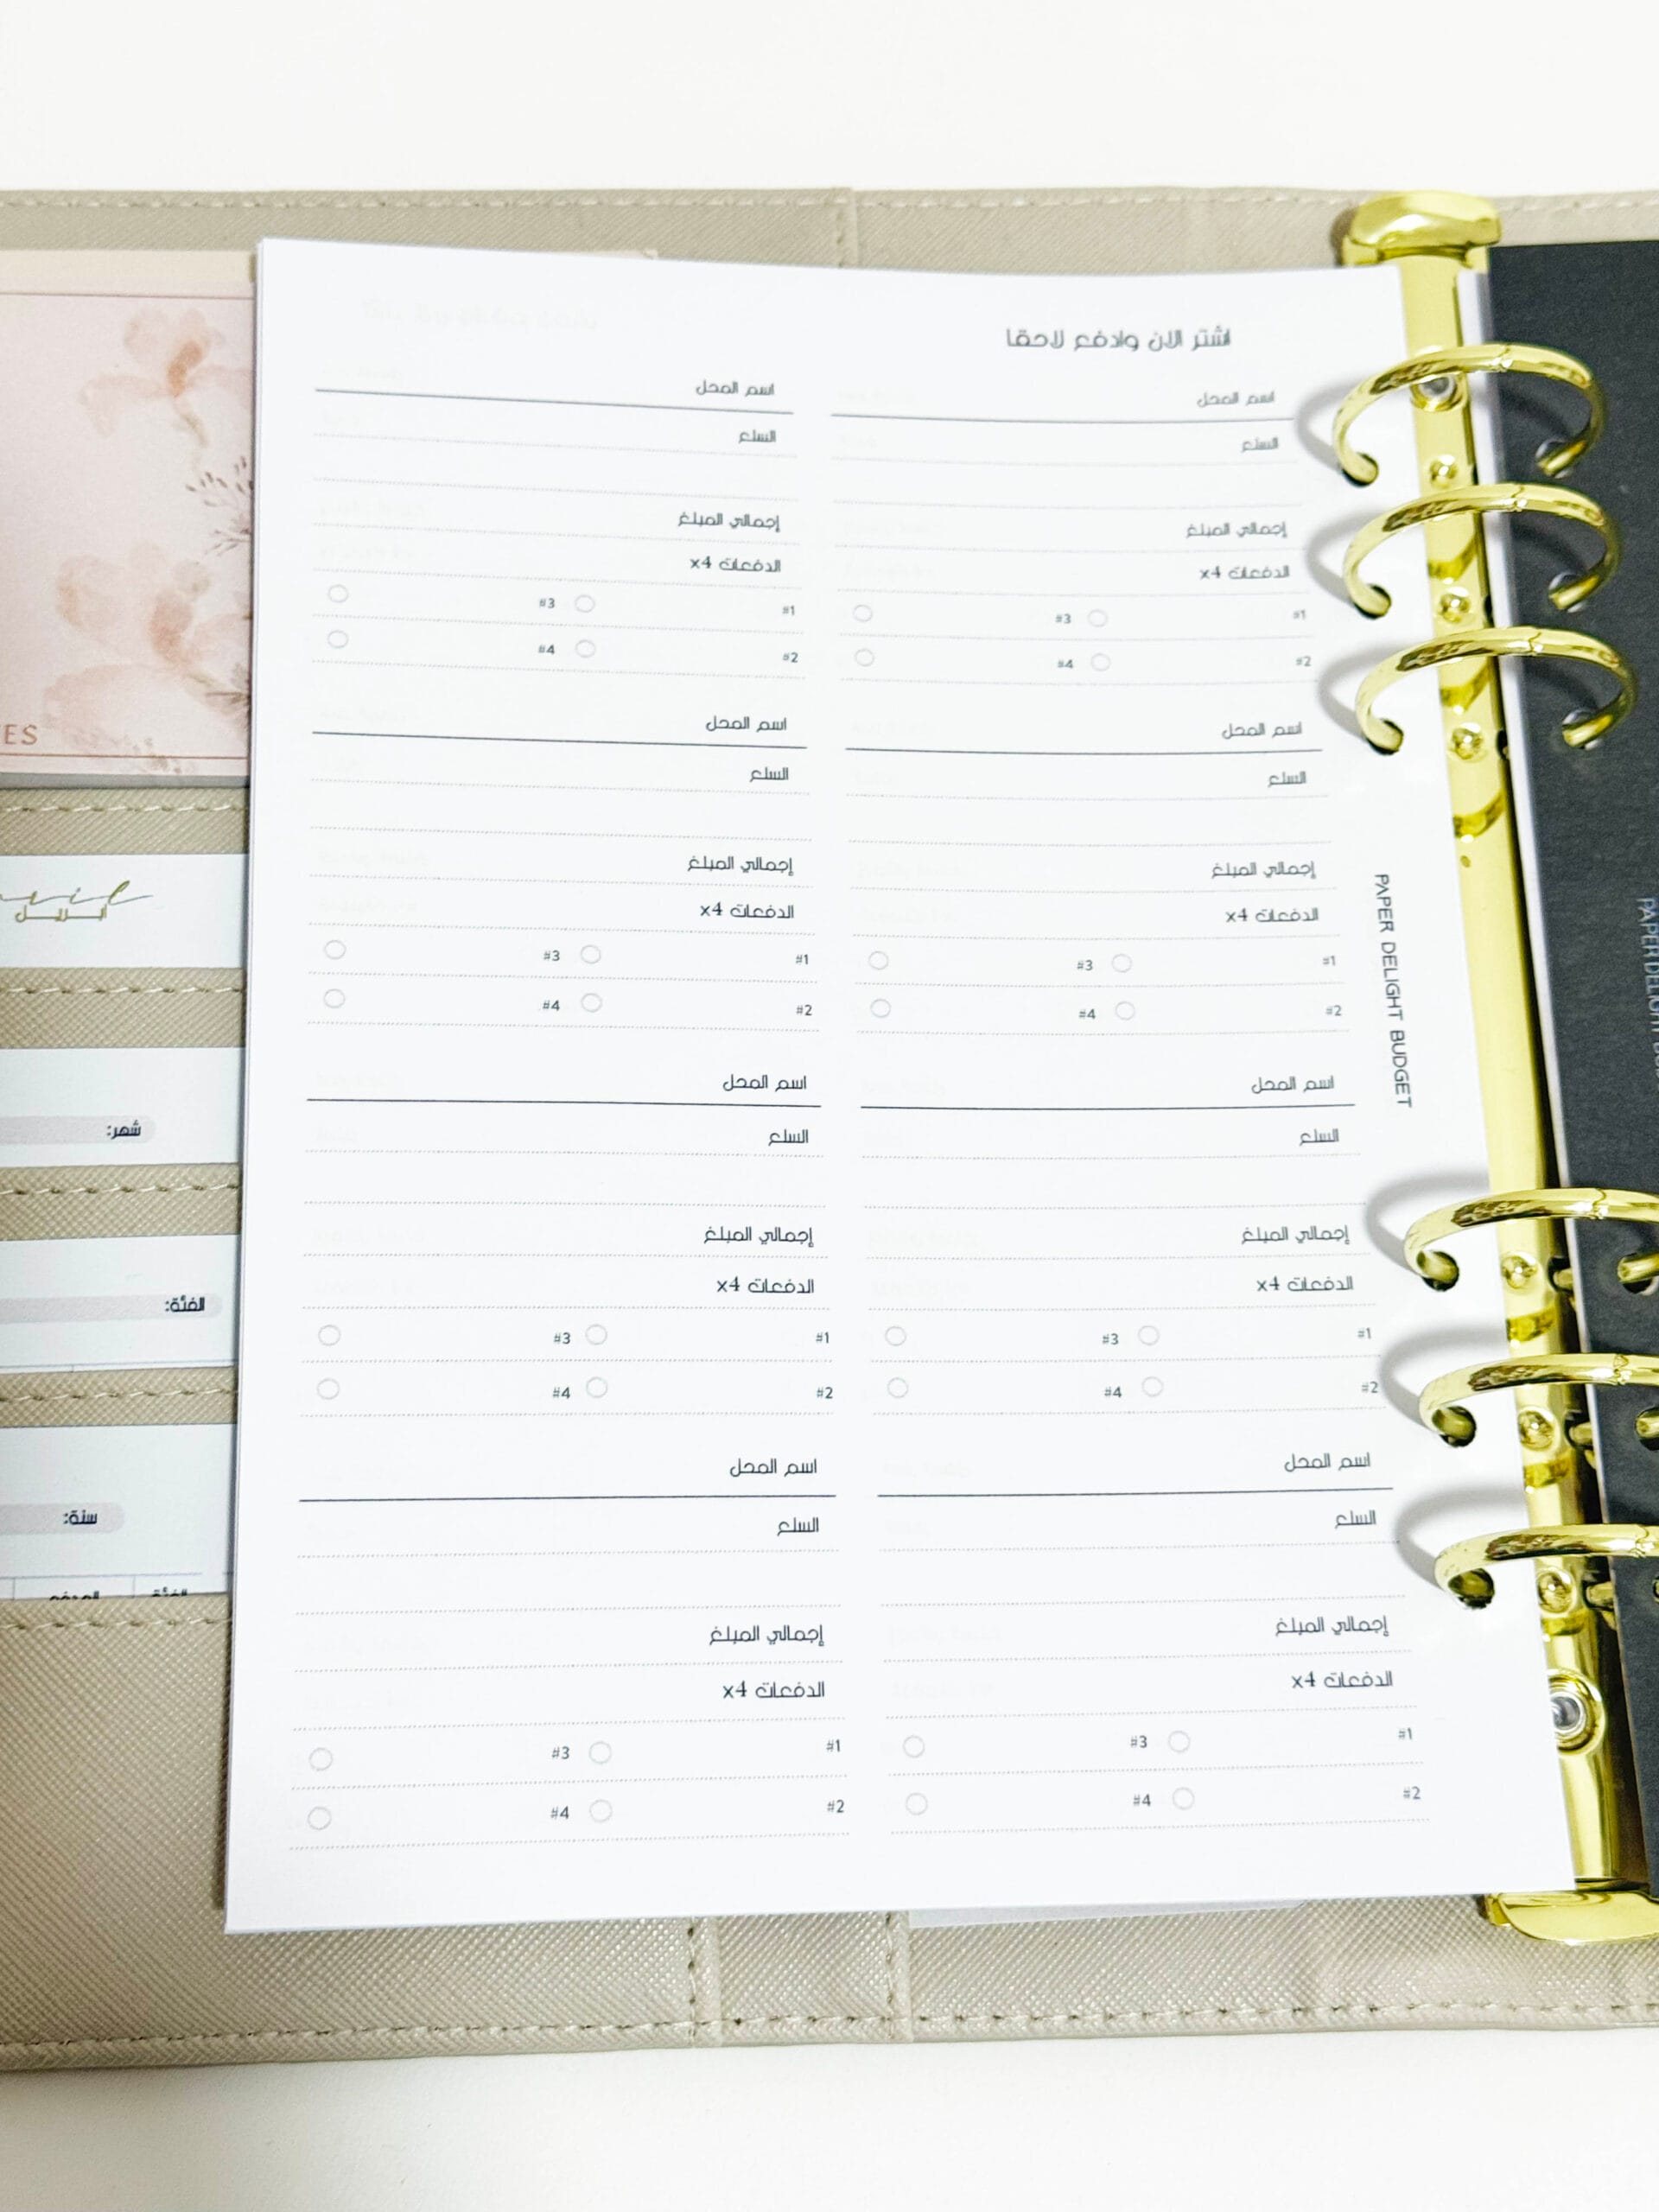 اشتر الان وادفع لاحقا
اسم المحل
السلع
إجمالي المبلغ
الدفعات x4
#1 #3
#2 #4
اسم المحل
السلع
إجمالي المبلغ
الدفعات x4
#1 #3
#2 #4
اسم المحل
السلع
إجمالي المبلغ
الدفعات x4
#1 #3
#2 #4
اسم المحل
السلع
إجمالي المبلغ
الدفعات x4
#1 #3
#2 #4
اسم المحل
السلع
إجمالي المبلغ
الدفعات x4
#1 #3
#2 #4
اسم المحل
السلع
إجمالي المبلغ
الدفعات x4
#1 #3
#2 #4
اسم المحل
السلع
إجمالي المبلغ
الدفعات x4
#1 #3
#2 #4
اسم المحل
السلع
إجمالي المبلغ
الدفعات x4
#1 #3
#2 #4
PAPER DELIGHT BUDGET
PAPER DELIGHT
ES
شهر:
الفئة:
سنة: